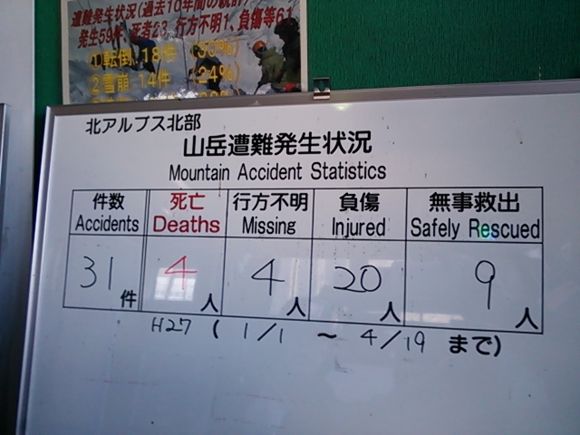 遭難発生状況(過去10年間の統計)
発生59件、死者23、行方不明1、負傷等61
①転倒、18件 (30%)
②雪崩、14件 (24%)
北アルプス北部
山岳遭難発生状況
Mountain Accident Statistics
件数 死亡 行方不明 負傷 無事救出
Accidents Deaths Missing Injured Safely Rescued
31件 4人 4人 20人 9人
H27 ( 1/1 ~ 4/19 まで)